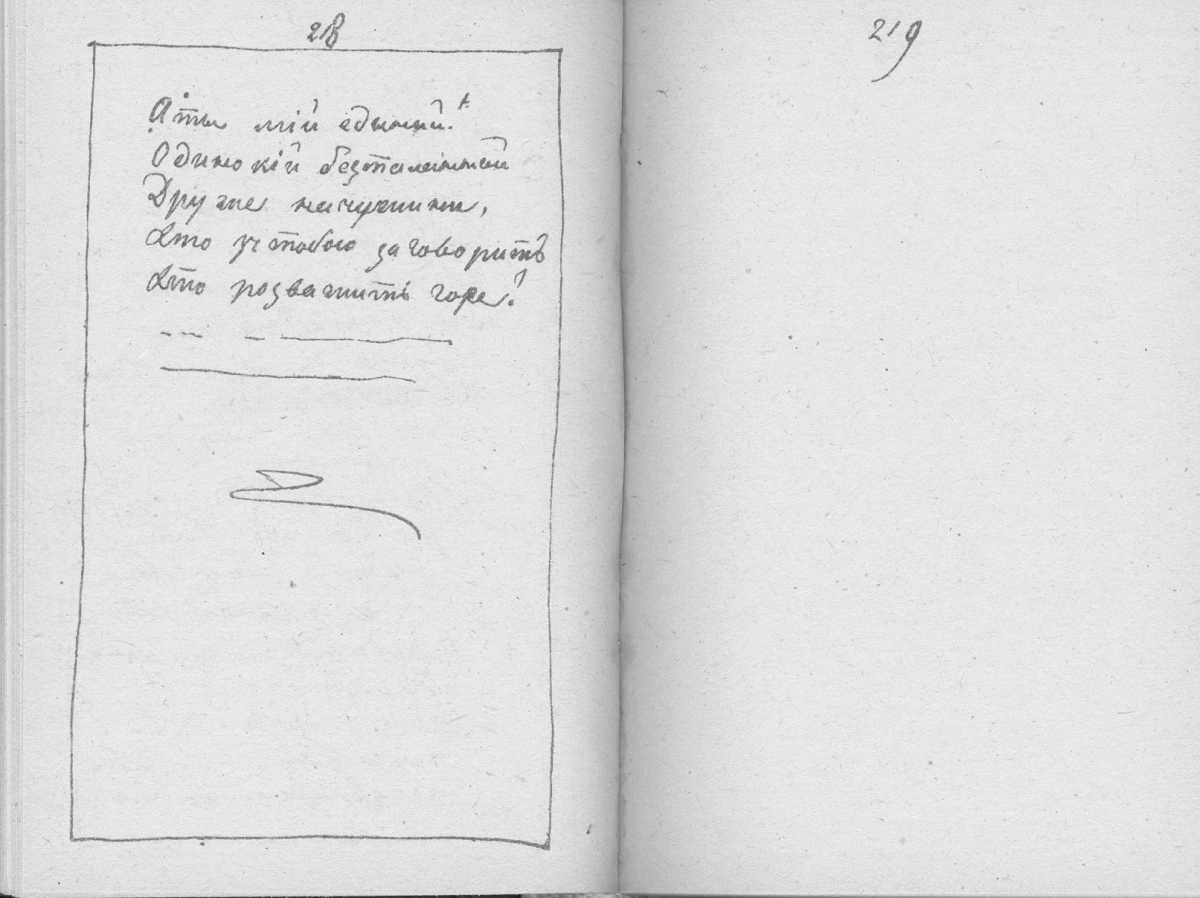 218
А ти мій єдиний!
Одинокій безталанний
Друже на чужини,
Хто зъ тобою заговорить
Хто розважить горе!
219